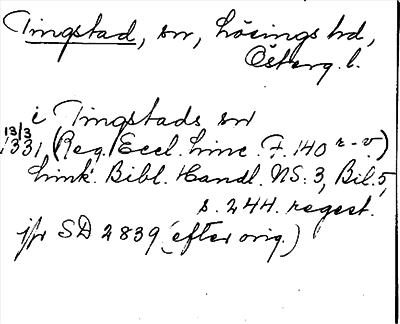 Tingstad, sn, Lösings hd,
Österg. l.
i Tingstads sn
13/3
1331 (Reg. Eccl. Linc. F. 140 r-v.)
Link. Bibl. Handl. NS. 3, Bil. 5,
s. 244. regest.
jfr SD 2839 (efter orig.)